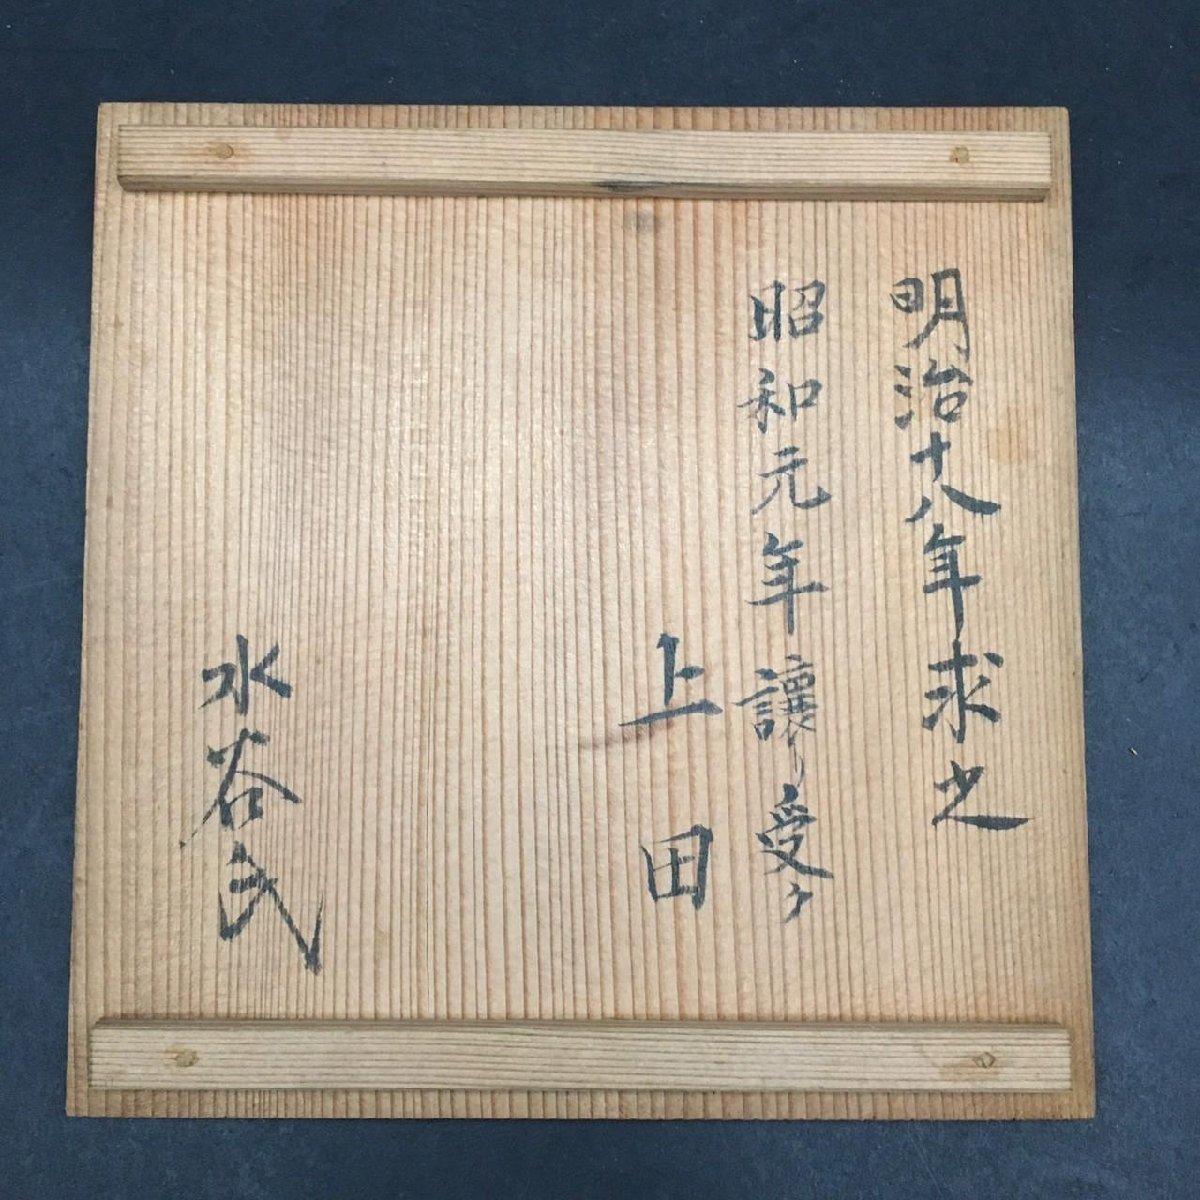 明治十八年求之
昭和元年譲り受ケ
上田
水谷氏